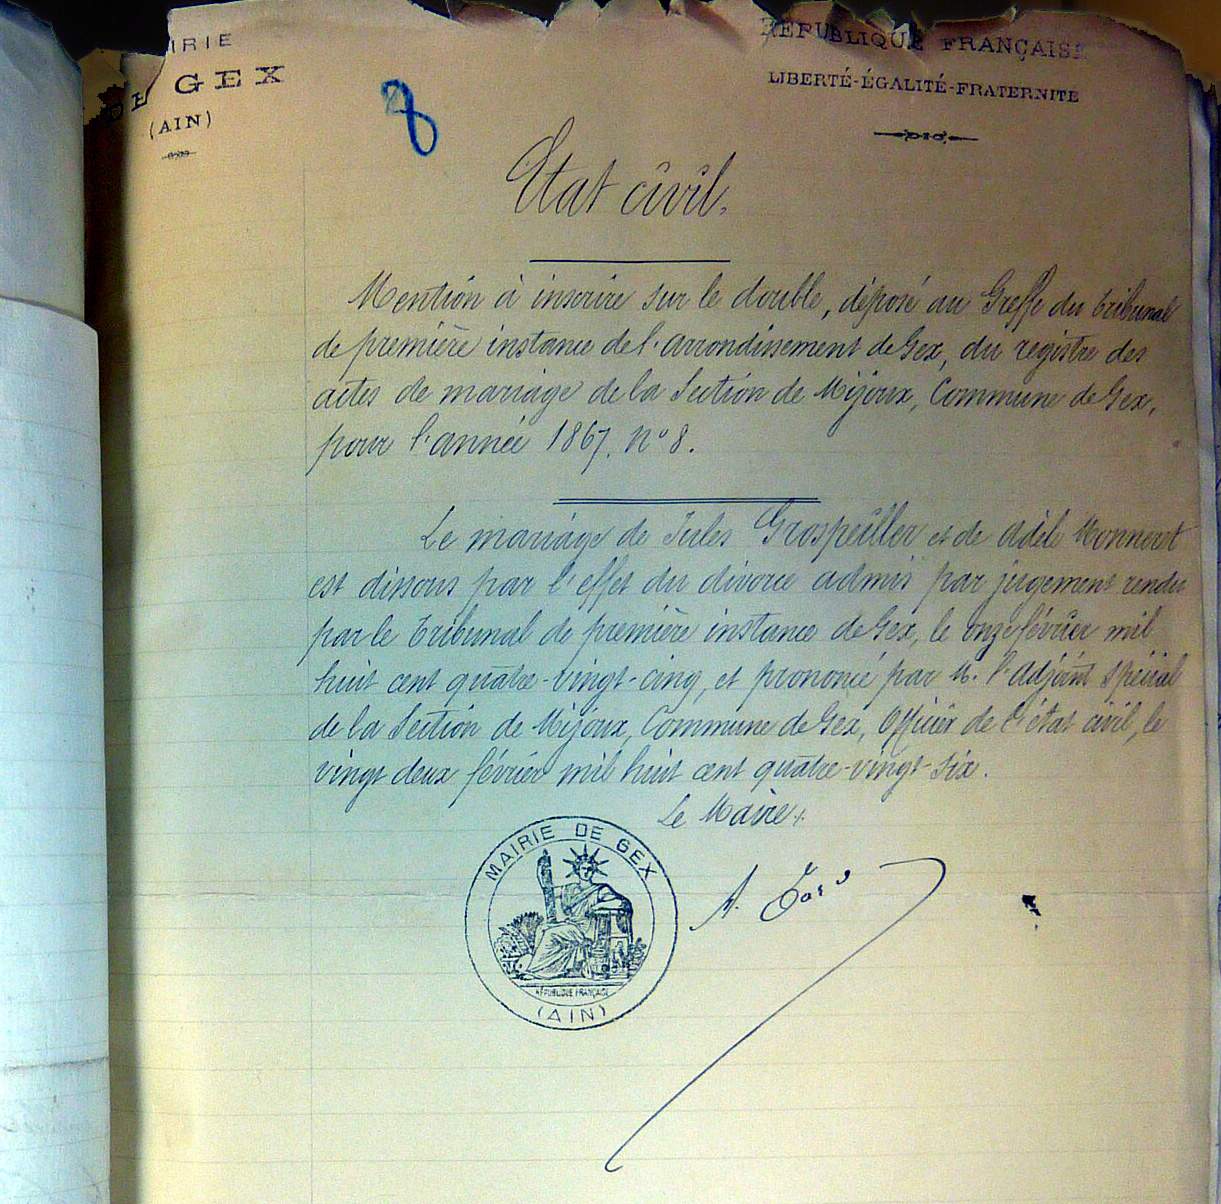 MAIRIE
DE GEX
(AIN)
8
RÉPUBLIQUE FRANÇAISE
LIBERTÉ-ÉGALITÉ-FRATERNITÉ
Etat civil.
Mention à inscrire sur le double, déposé au Greffe du tribunal
de première instance de l'arrondissement de Gex, du registre des
actes de mariage de la Section de Mijoux, Commune de Gex,
pour l'année 1867. N° 8.
Le mariage de Jules Grospeiller et de Adèle Monneret
est dissous par l'effet du divorce admis par jugement rendu
par le tribunal de première instance de Gex, le onze février mil
huit cent quatre-vingt-cinq, et prononcé par M. l'adjoint spécial
de la Section de Mijoux, Commune de Gex, Officier de l'état civil, le
vingt deux février mil huit cent quatre-vingt-six.
Le Maire:
A.
MAIRIE DE GEX
RÉPUBLIQUE FRANÇAISE
(AIN)